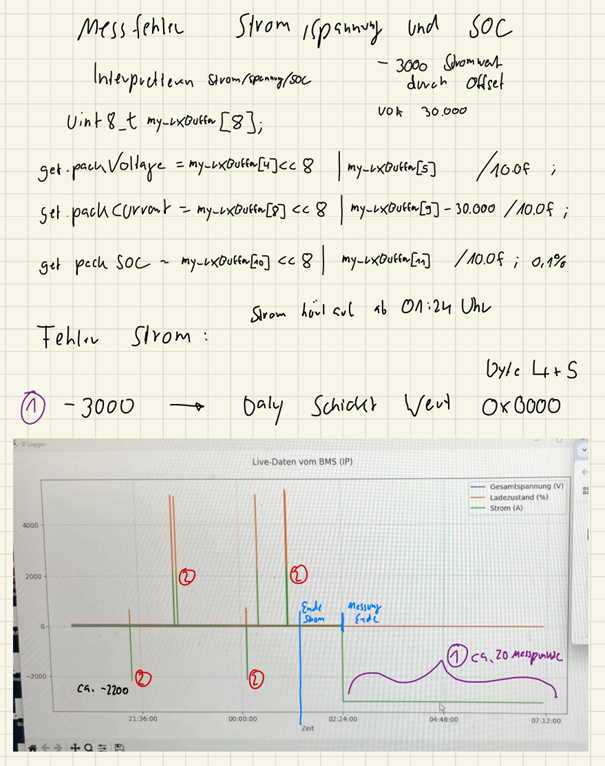 Messfehler Strom /Spannung und SOC
Interpretieren Strom/spannung/SOC
- 3000 Stromwert
durch Offset
von 30.000
Uint 8_t my_rxBuffer [8];
get.packVoltage = my_rxBuffer[4]<< 8 | my_rxBuffer[5] /10.0f ;
get.packCurrent = my_rxBuffer[8] << 8 | my_rxBuffer[9] - 30.000 /10.0f ;
get pack SOC = my_rxBuffer[10] << 8 | my_rxBuffer[11] /10.0f ; 0,1%
Strom hört auf ab 01:24 Uhr
Fehler Strom :
byte 4+5
① -3000 → Daly Schickt Wert 0x0000
IP Logger
Live-Daten vom BMS (IP)
Gesamtspannung (V)
Ladezustand (%)
Strom (A)
4000
2000
② ②
Ende Strom
Messung Ende
0
① ca. 20 Messpunkte
-2000
② ②
ca. -2200
21:36:00 00:00:00 02:24:00 04:48:00 07:12:00
Zeit